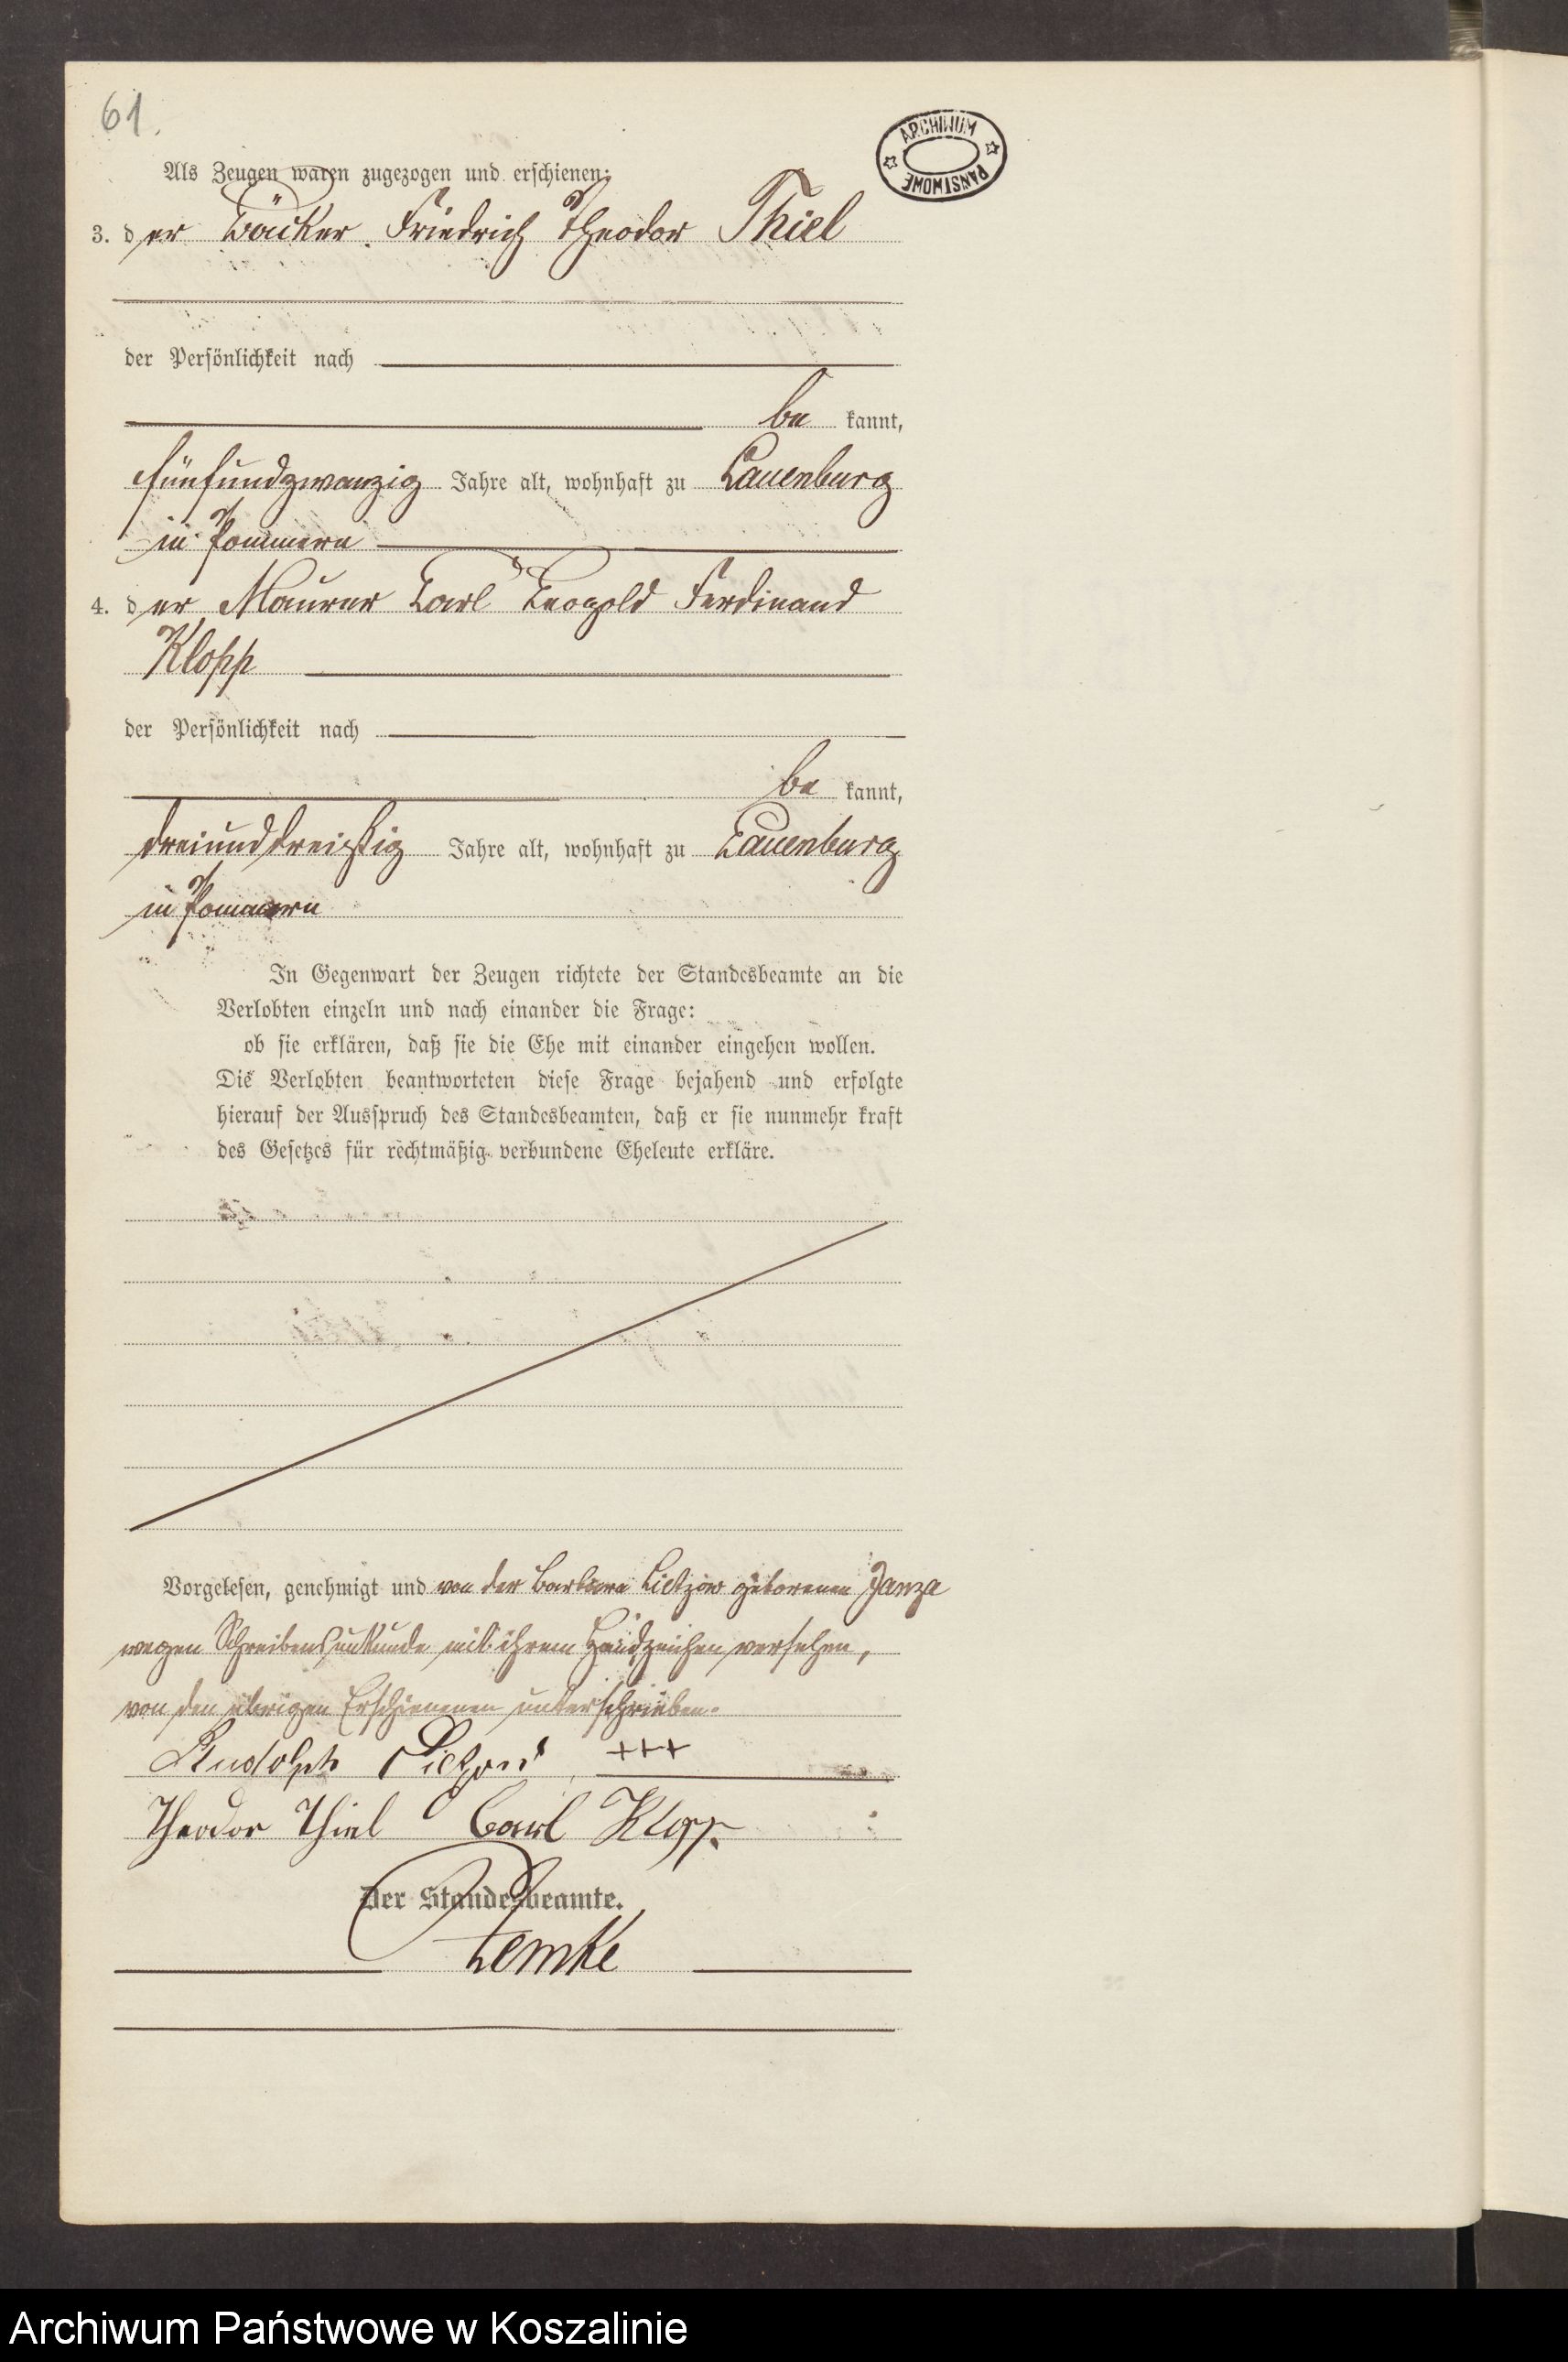 61.
ARCHIWUM PAŃSTWOWE
Als Zeugen waren zugezogen und erschienen:
3. der Bäcker Friedrich Theodor Thiel
der Persönlichkeit nach
be kannt,
fünfundzwanzig Jahre alt, wohnhaft zu Lauenburg
in Pommern
4. der Maurer Carl Leopold Ferdinand
Klopp
der Persönlichkeit nach
be kannt,
dreiunddreißig Jahre alt, wohnhaft zu Lauenburg
in Pommern
In Gegenwart der Zeugen richtete der Standesbeamte an die
Verlobten einzeln und nach einander die Frage:
ob sie erklären, daß sie die Ehe mit einander eingehen wollen.
Die Verlobten beantworteten diese Frage bejahend und erfolgte
hierauf der Ausspruch des Standesbeamten, daß er sie nunmehr kraft
des Gesetzes für rechtmäßig verbundene Eheleute erkläre.
Vorgelesen, genehmigt und von der Barbara Lietzow geborenen Janza
wegen Schreibensunkunde mit ihrem Handzeichen versehen,
von den übrigen Erschienenen unterschrieben.
Rudolph Lietzow +++
Theodor Thiel Carl Klopp.
Der Standesbeamte.
Lemke
Archiwum Państwowe w Koszalinie